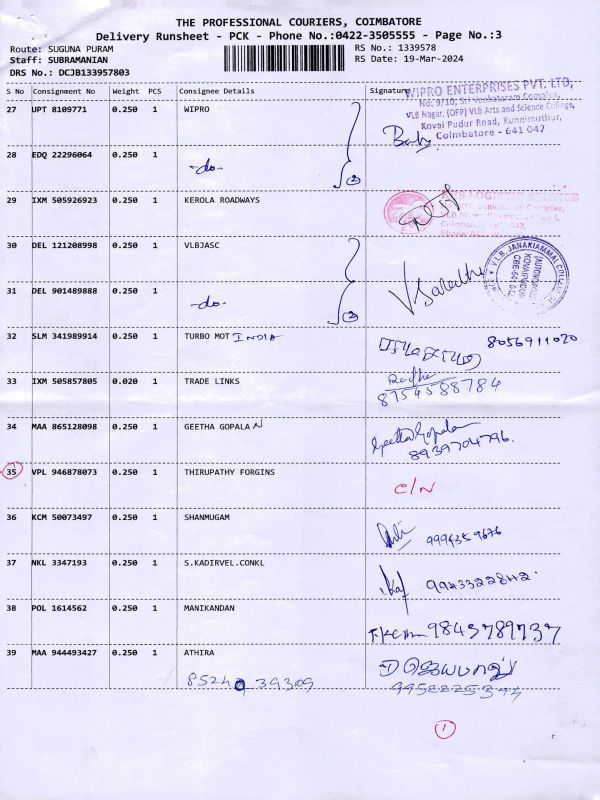 THE PROFESSIONAL COURIERS, COIMBATORE
Delivery Runsheet - PCK - Phone No.:0422-3505555 - Page No.:3
Route: SUGUNA PURAM
RS No.: 1339578
Staff: SUBRAMANIAN
RS Date: 19-Mar-2024
DRS No.: DCJB133957803
S No Consignment No Weight PCS Consignee Details Signature
WIPRO ENTERPRISES PVT. LTD,
No: 9/10, Sri Venkataram Complex,
VLB Nagar, (OPP) VLB Arts and Science College,
Kovai Pudur Road, Kunnimuthur,
Coimbatore - 641 042
27 UPT 8109771 0.250 1 WIPRO
28 EDQ 22296064 0.250 1 -do- 2
29 IXM 505926923 0.250 1 KEROLA ROADWAYS
30 DEL 121208998 0.250 1 VLBJASC
31 DEL 901489888 0.250 1 -do- 2
32 SLM 341989914 0.250 1 TURBO MOT INDIA 8056911020
33 IXM 505857805 0.020 1 TRADE LINKS Radha
8754588784
34 MAA 865128098 0.250 1 GEETHA GOPALAN Geetha Gopalan
8939704796.
35 VPL 946878073 0.250 1 THIRUPATHY FORGINS C/N
36 KCM 50073497 0.250 1 SHANMUGAM 9994359676
37 NKL 3347193 0.250 1 S.KADIRVEL.CONKL 9943322842.
38 POL 1614562 0.250 1 MANIKANDAN 9843789737
39 MAA 944493427 0.250 1 ATHIRA
85240 39309 9952225394
1